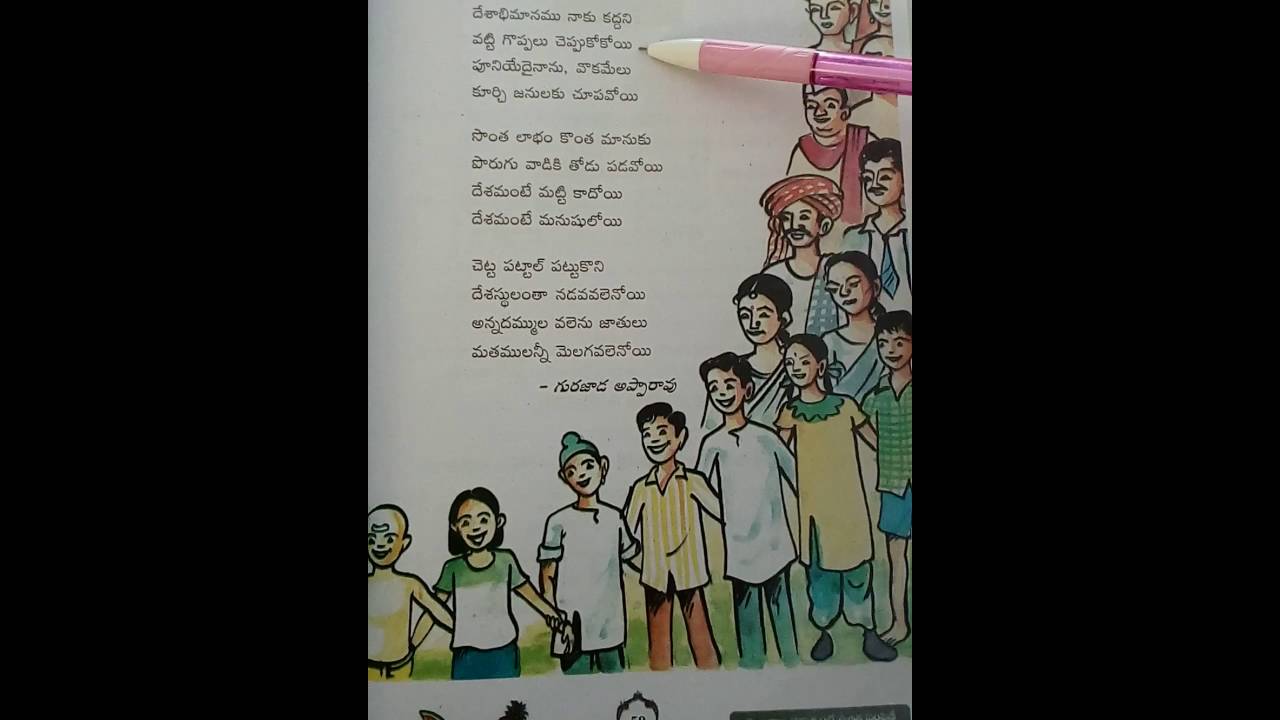 దేశాభిమానము నాకు కద్దని
వట్టి గొప్పలు చెప్పుకోకోయి
పూనియేదైనాను, వొకమేలు
కూర్చి జనులకు చూపవోయి
సొంత లాభం కొంత మానుకు
పొరుగు వాడికి తోడు పడవోయి
దేశమంటే మట్టి కాదోయి
దేశమంటే మనుషులోయి
చెట్ట పట్టాల్ పట్టుకొని
దేశస్థులంతా నడవవలెనోయి
అన్నదమ్ముల వలెను జాతులు
మతములన్నీ మెలగవలెనోయి
– గురజాడ అప్పారావు